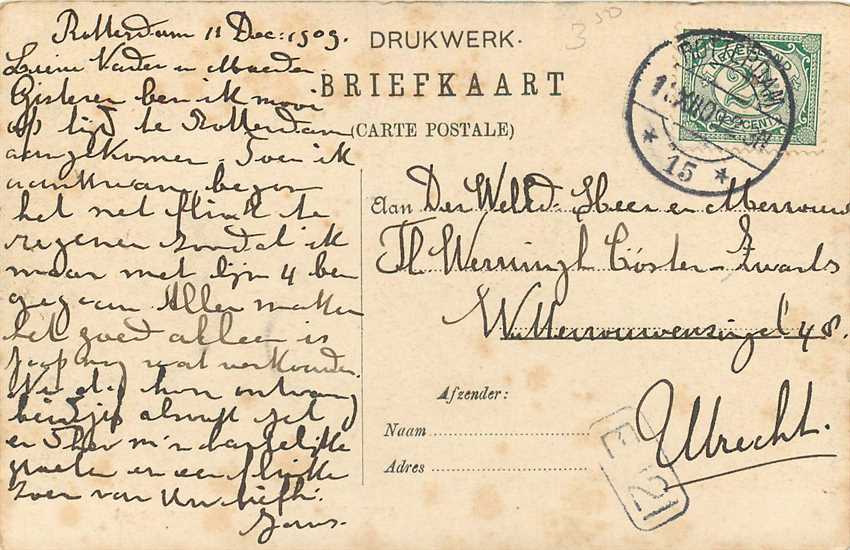 Rotterdam 11 Dec: 1909.
Lieve Vader en Moeder
Gisteren ben ik mooi
op tijd te Rotterdam
aangekomen. Toen ik
aankwam begon
het net flink te
regenen zoodat ik
maar met lijn 4 ben
gegaan. Allen maken
het goed alleen is
Jaap nog wat verkouden.
Nu dag hoor ontvang
beidjes alsnog
en hartelijke
groeten en een flinke
zoen van Uw liefh.
DRUKWERK.
BRIEFKAART
(CARTE POSTALE)
Aan Den WelEd. Heer en Mevrouw
Th Werningh Cöster-Zwarts
Wittevrouwensingel 48.
Utrecht.
Afzender:
Naam
Adres
ROTTERDAM
15
2
CENT
350
E 21